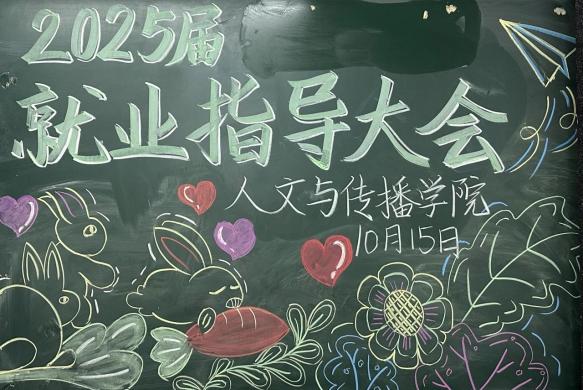 2025届
就业指导大会
人文与传播学院
10月15日